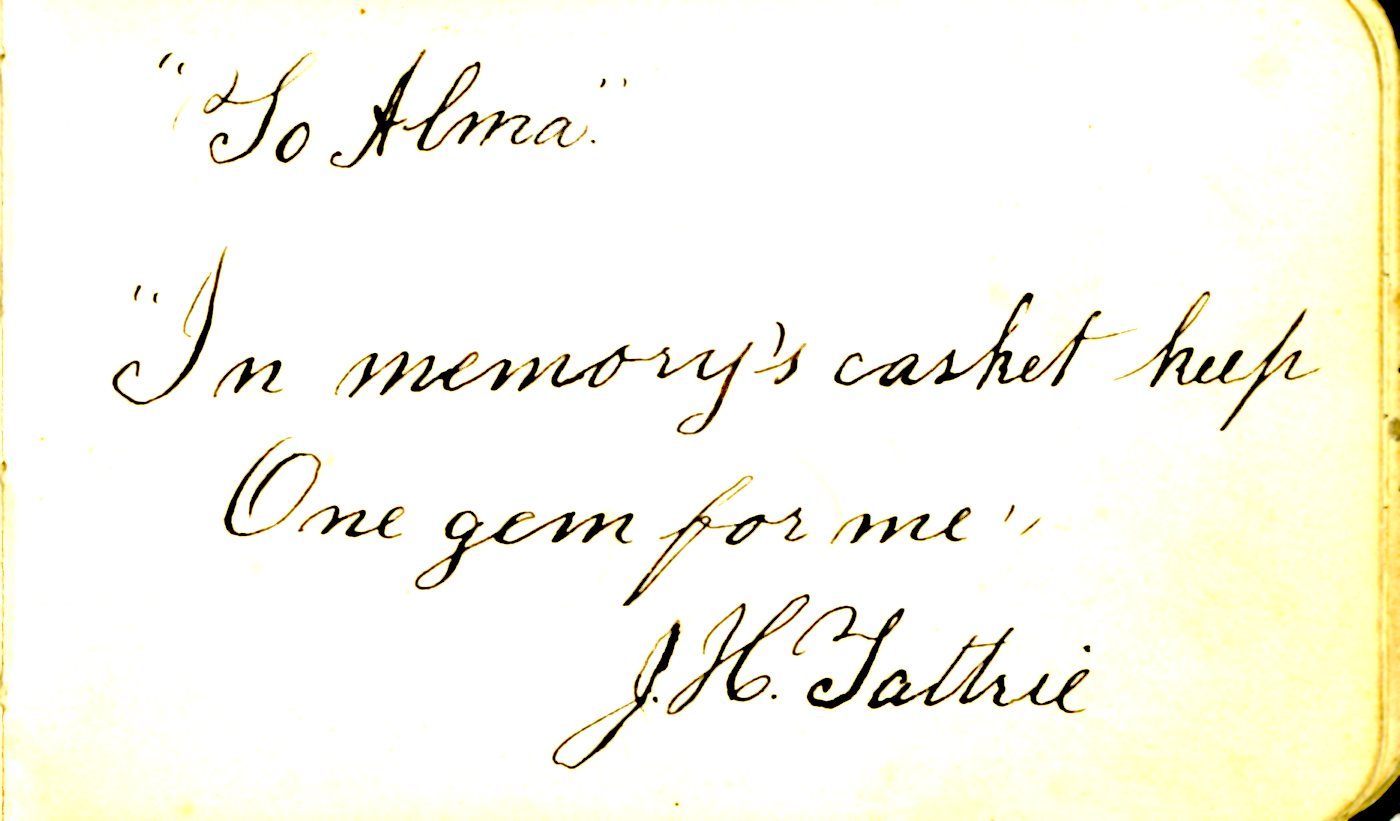 "To Alma".
"In memory's casket keep
One gem for me"
J. H. Tattrie